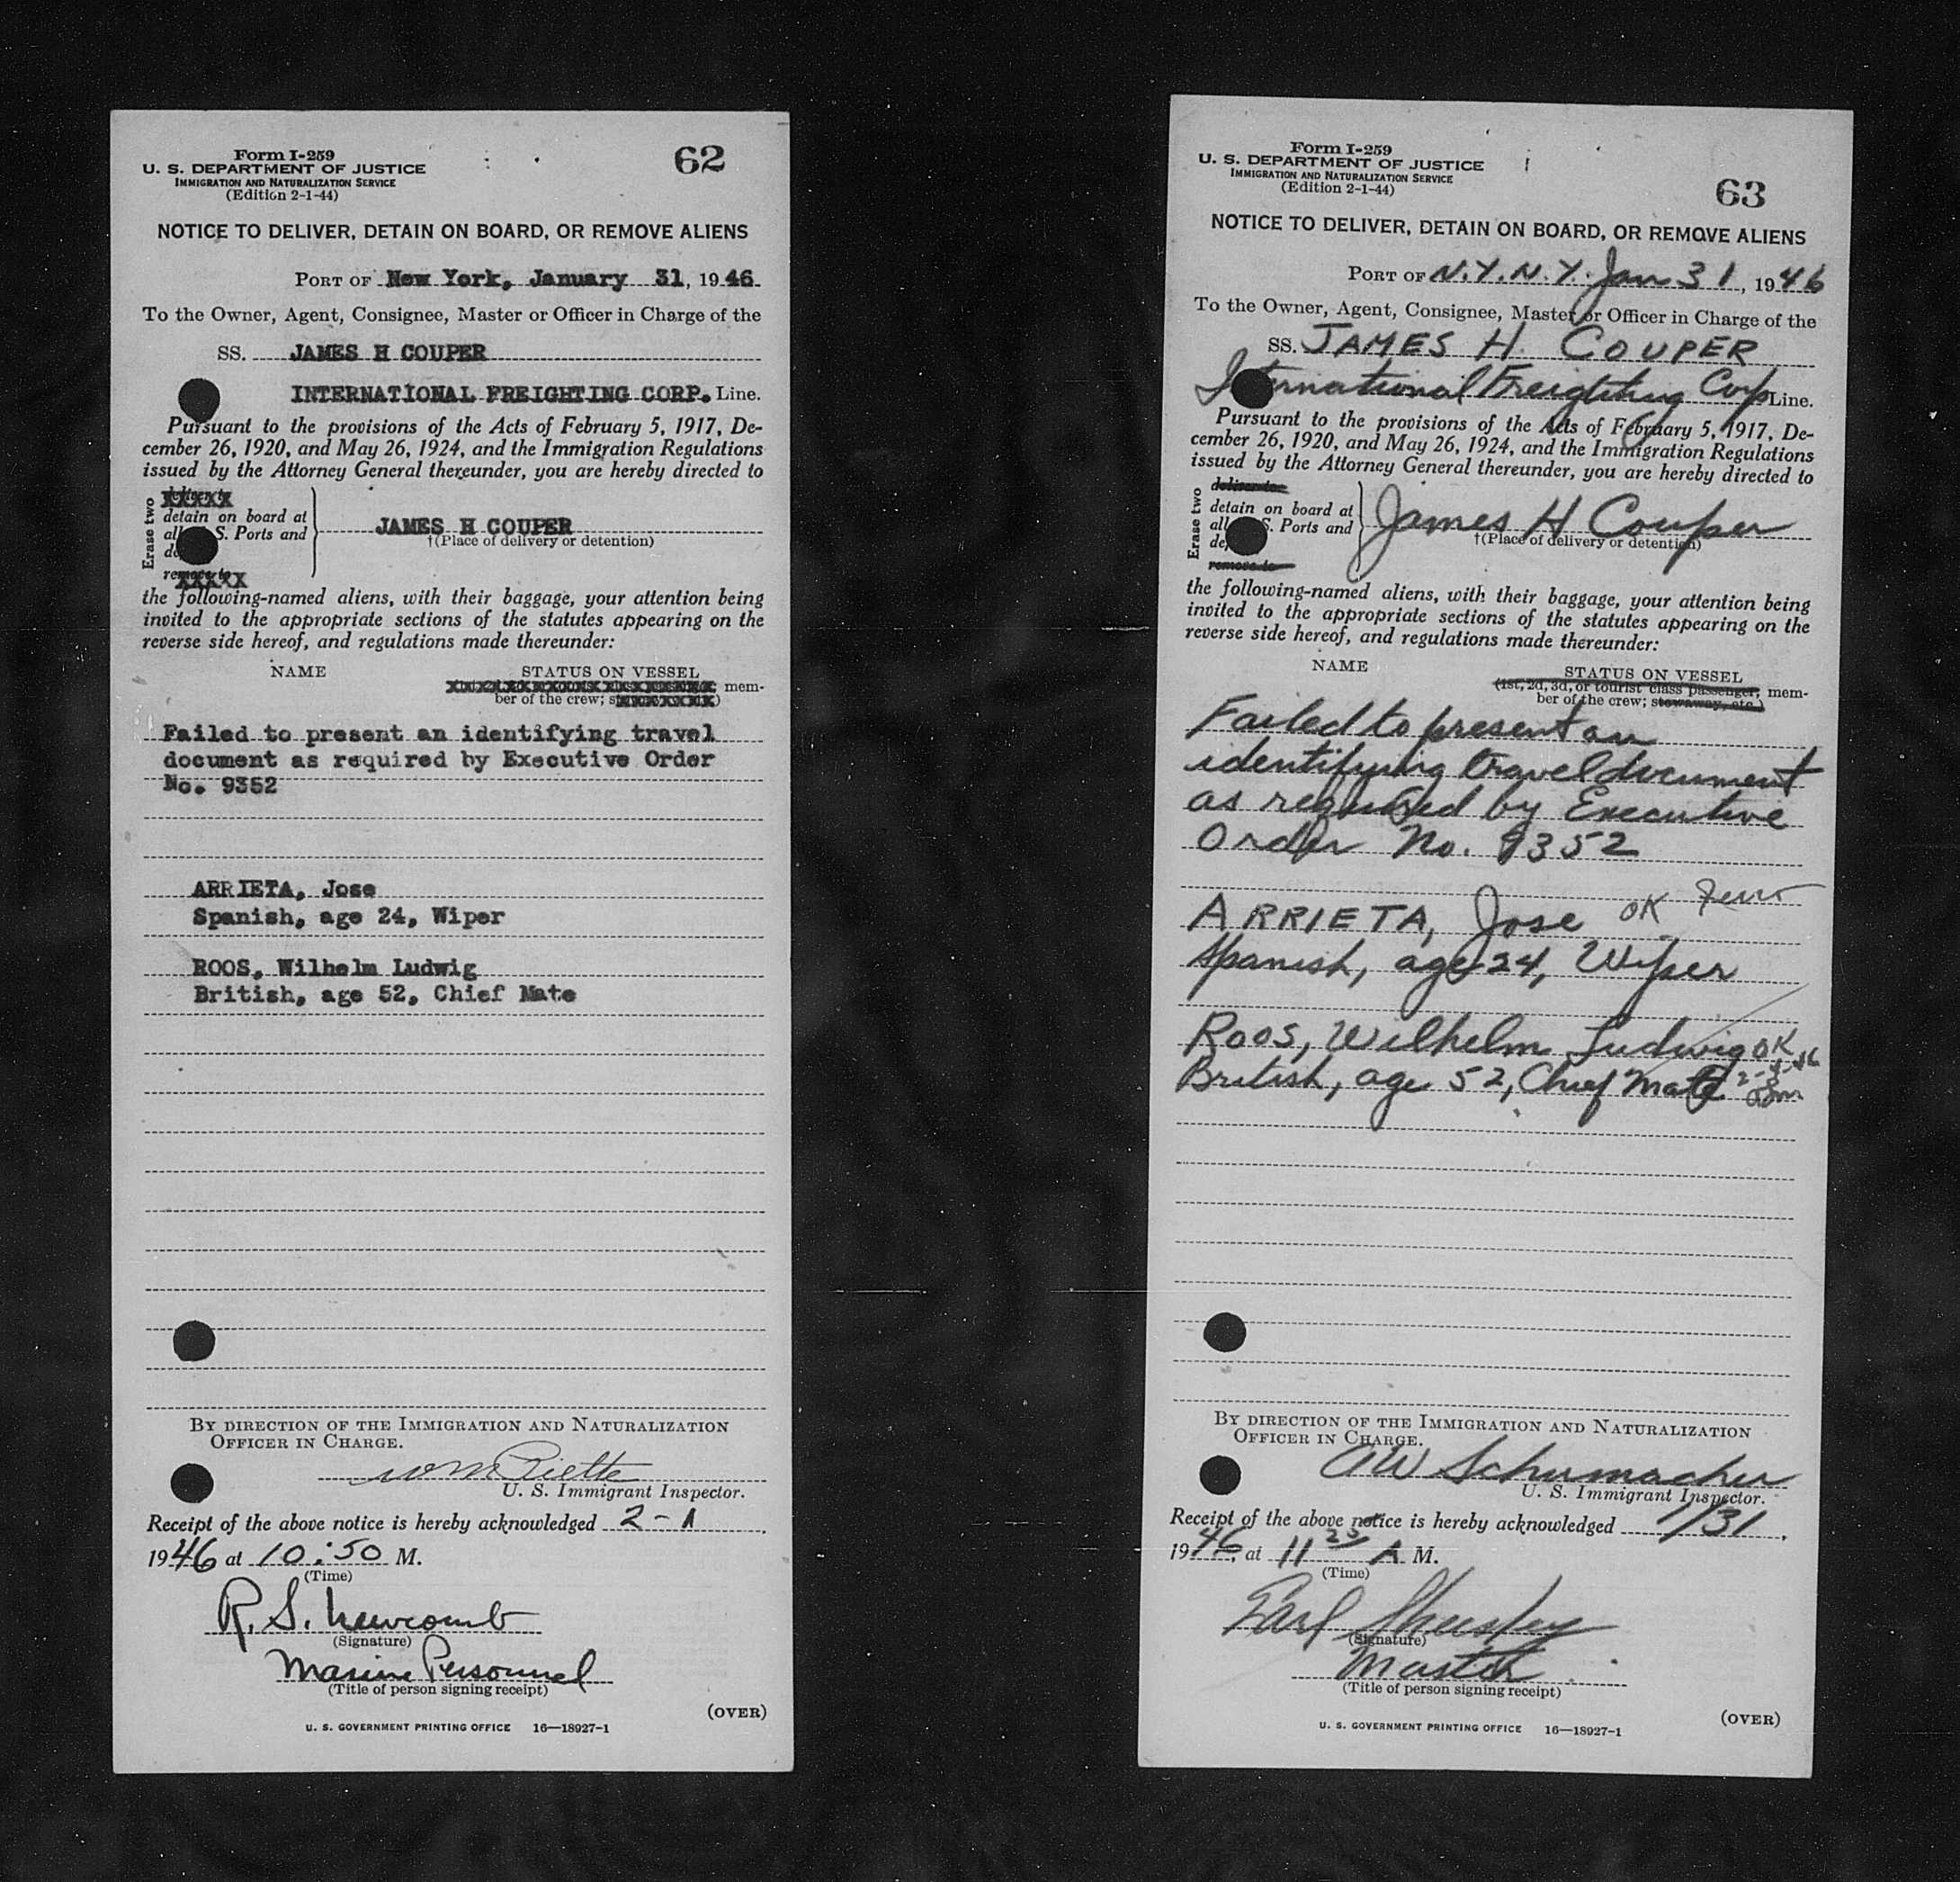 Form I-259
U. S. DEPARTMENT OF JUSTICE
IMMIGRATION AND NATURALIZATION SERVICE
(Edition 2-1-44)
62
NOTICE TO DELIVER, DETAIN ON BOARD, OR REMOVE ALIENS
PORT OF New York, January 31, 1946
To the Owner, Agent, Consignee, Master or Officer in Charge of the
SS. JAMES H COUPER
INTERNATIONAL FREIGHTING CORP. Line.
Pursuant to the provisions of the Acts of February 5, 1917, De-
cember 26, 1920, and May 26, 1924, and the Immigration Regulations
issued by the Attorney General thereunder, you are hereby directed to
Erase two
deliver to
detain on board at
all S. Ports and
remove to
JAMES H COUPER
†(Place of delivery or detention)
the following-named aliens, with their baggage, your attention being
invited to the appropriate sections of the statutes appearing on the
reverse side hereof, and regulations made thereunder:
NAME STATUS ON VESSEL
mem-
ber of the crew;
Failed to present an identifying travel
document as required by Executive Order
No. 9352
ARRIETA, Jose
Spanish, age 24, Wiper
ROOS, Wilhelm Ludwig
British, age 52, Chief Mate
BY DIRECTION OF THE IMMIGRATION AND NATURALIZATION
OFFICER IN CHARGE.
U. S. Immigrant Inspector.
Receipt of the above notice is hereby acknowledged 2-1
1946 at 10:50 M.
(Time)
R. S. Newcomb
(Signature)
Marine Personnel
(Title of person signing receipt)
(OVER)
U. S. GOVERNMENT PRINTING OFFICE 16—18927-1
Form I-259
U. S. DEPARTMENT OF JUSTICE
IMMIGRATION AND NATURALIZATION SERVICE
(Edition 2-1-44)
63
NOTICE TO DELIVER, DETAIN ON BOARD, OR REMOVE ALIENS
PORT OF N.Y.N.Y. Jan 31, 1946
To the Owner, Agent, Consignee, Master or Officer in Charge of the
SS. JAMES H. COUPER
International Freighting Corp Line.
Pursuant to the provisions of the Acts of February 5, 1917, De-
cember 26, 1920, and May 26, 1924, and the Immigration Regulations
issued by the Attorney General thereunder, you are hereby directed to
Erase two
deliver to
detain on board at
all S. Ports and
remove to
James H Couper
†(Place of delivery or detention)
the following-named aliens, with their baggage, your attention being
invited to the appropriate sections of the statutes appearing on the
reverse side hereof, and regulations made thereunder:
NAME STATUS ON VESSEL
(1st, 2d, 3d, or tourist class passenger; mem-
ber of the crew; stowaway, etc.)
Failed to present an
identifying travel document
as required by Executive
Order No. 9352
ARRIETA, Jose OK
Spanish, age 24, Wiper
Roos, Wilhelm Ludwig OK
British, age 52, Chief Mate
BY DIRECTION OF THE IMMIGRATION AND NATURALIZATION
OFFICER IN CHARGE.
AW Schumacher
U. S. Immigrant Inspector.
Receipt of the above notice is hereby acknowledged 1/31,
1946, at 11 25 A M.
(Time)
Earl
(Signature)
Master
(Title of person signing receipt)
(OVER)
U. S. GOVERNMENT PRINTING OFFICE 16—18927-1